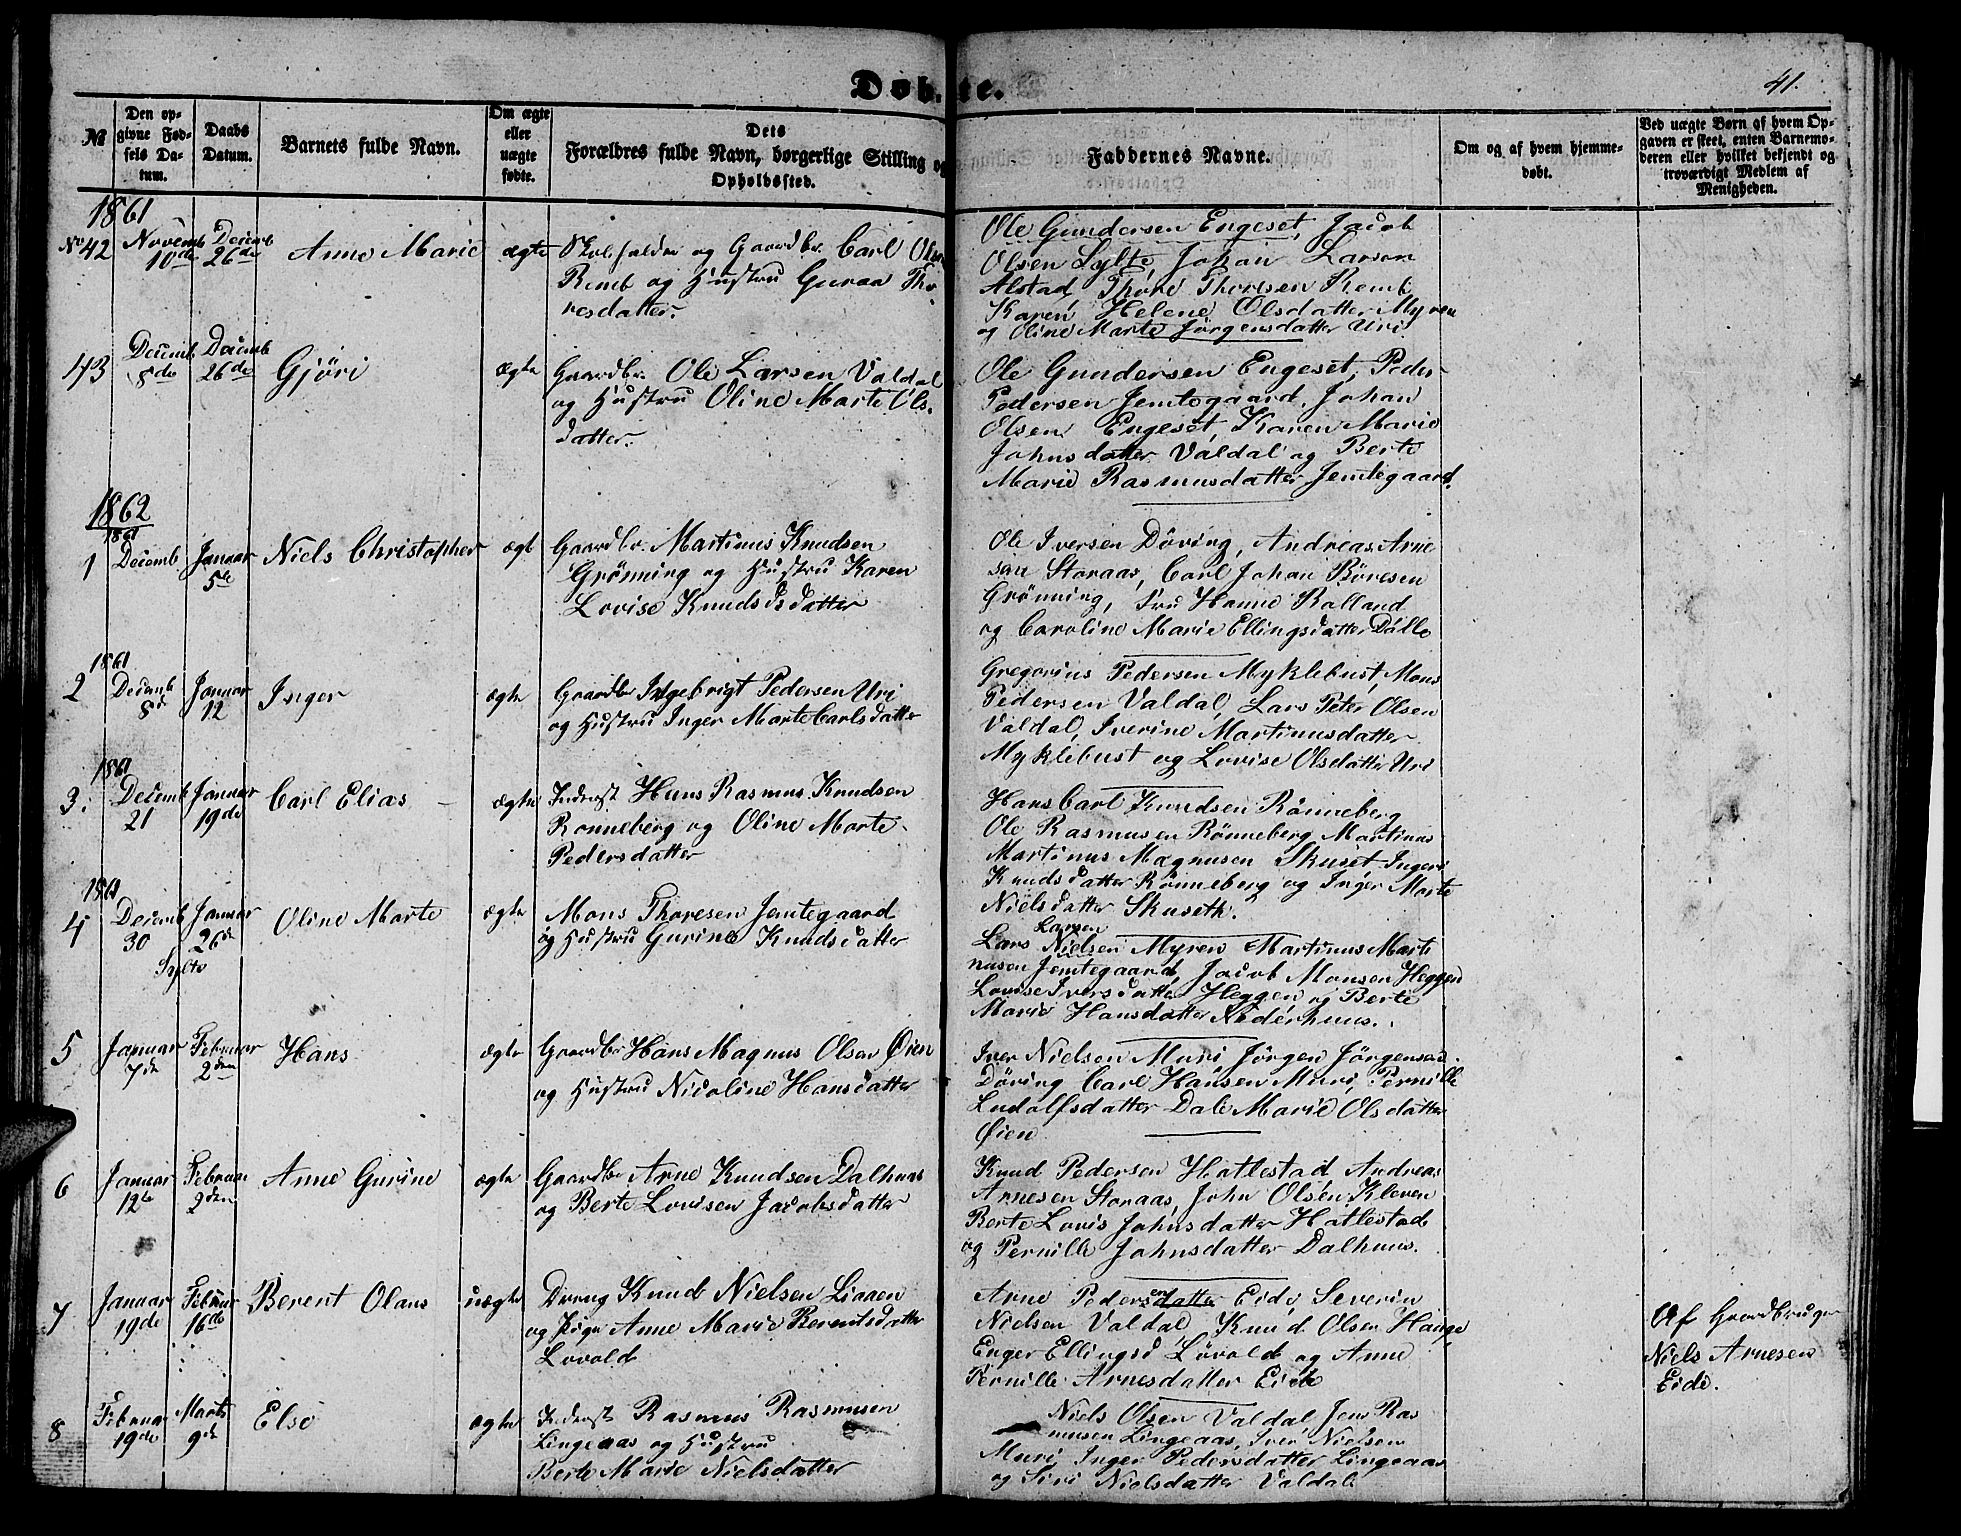 Døbte.
41.
№
Den op-
givne Fød-
sels Da-
tum.
Daabs
Datum.
Barnets fulde Navn.
Om ægte
eller
uægte
fødte.
Dets
Forældres fulde Navn, borgerlige Stilling og
Opholdssted.
Faddernes Navne.
Om og af hvem hjemme-
døbt.
Ved uægte Børn af hvem Op-
gaven er skeet, enten Barnemo-
deren eller hvilket bekjendt og
troværdigt Medlem af
Menigheden.
1861
No 42
Novemb
10de
Decemb
26de
Anne Marie
ægte
og Gaardbr. Carl Olsen
Remb og Hustru Guraa Tho-
resdatter.
Ole Gundersen Engeset, Jacob
Olsen Sylte, Johan Larsen
Alstad, Thore Thoresen Remb
Karen Helene Olsdatter Myren
og Oline Marte Jørgensdatter Uri
43
Decemb
8de
Decemb
26de
Gjøri
ægte
Gaardbr. Ole Larsen Valdal
og Hustru Oline Marte Ols-
datter.
Ole Gundersen Engeset, Peder
Pedersen Jemtegaard, Johan
Olsen Engeset, Karen Marie
Johnsdatter Valdal og Berte
Marie Rasmusdatter Jemtegaard.
1862
1
1861
Decemb
Januar
5te
Niels Christopher
ægt
Gaardbr. Martinus Knudsen
Grønning og Hustru Karen
Lovise Knudsdsdatter
Ole Iversen Døving, Andreas Arne
sen Storaas, Carl Johan Børesen
Grønning, Fru Hanne Balland
og Caroline Marie Ellingsdatter Dalle
2
1861
Decemb
8d
Januar
12
Inger
ægte
Gaardbr Ingebrigt Pedersen Uri
og Hustru Inger Marte Carlsdatter
Gregorius Pedersen Myklebust, Mons
Pedersen Valdal, Lars Peter Olsen
Valdal, Iverine Martinusdatter
Myklebust og Lovise Olsdatter Uri
3.
1861
Decemb
21
Januar
19de
Carl Elias
ægte
Inderst Hans Rasmus Knudsen
Rønneberg og Oline Marte
Pedersdatter
Hans Carl Knudsen Rønneberg
Ole Rasmusen Rønneberg Martinus
Martinus Magnusen Skuset Ingeri
Knudsdatter Rønneberg og Inger Marte
Nielsdatter Skuseth.
4
1861
Decemb
30
Sylte
Januar
26d
Oline Marte
ægte
Mons Thoresen Jemtegaard
og Hustru Gurine Knudsdatter
Larsen
Lars Nielsen Myren Martinus Marti
nusen Jemtegaard, Jacob Monsen Heggen
Lovise Iversdatter Heggen og Berte
Marie Hansdatter Nederhuus.
5
Januar
7de
Februar
2den
Hans
ægte
Gaardbr Hans Magnus Olsen Øien
og Hustru Nicoline Hansdatter
Iver Nielsen Muri Jørgen Jørgensen
Døving Carl Hansen Muri, Pernille
Ludolfsdatter Dale Marie Olsdatter
Øien
6
Januar
12te
Februar
2den
Anne Gurine
ægte
Gaardbr Arne Knudsen Dalhuus
og Berte Lovisen Jacobsdatter
Knud Pedersen Hatlestad Andreas
Arnesen Storaas, John Olsen Kleven
Berte Lovis Johnsdatter Hatlestad
og Pernille Johnsdatter Dalhuus.
7
Januar
19de
Februar
16de
Berent Olaus
uægte
Dreng Knud Nielsen Liaaen
og Pige Anne Marie Berentsdatter
Lovold
Arne Pedersdatter en Eide, Severin
Nielsen Valdal, Knud Olsen Hauge
Enger Ellingsd Løvold og Anne
Pernille Arnesdatter Eide
Af Gaardbruger
Niels Arnesen
Eide.
8
Februar
19de
Marts
9de
Else
ægte
Inderst Rasmus Rasmusen
Lingeaas og Hustru
Berte Marie Nielsdatter
Niels Olsen Valdal Jens Ras
musen Lingeaas, Iver Nielsen
Muri Inger Pedersdatter Lingeaas
og Siri Nielsdatter Valdal